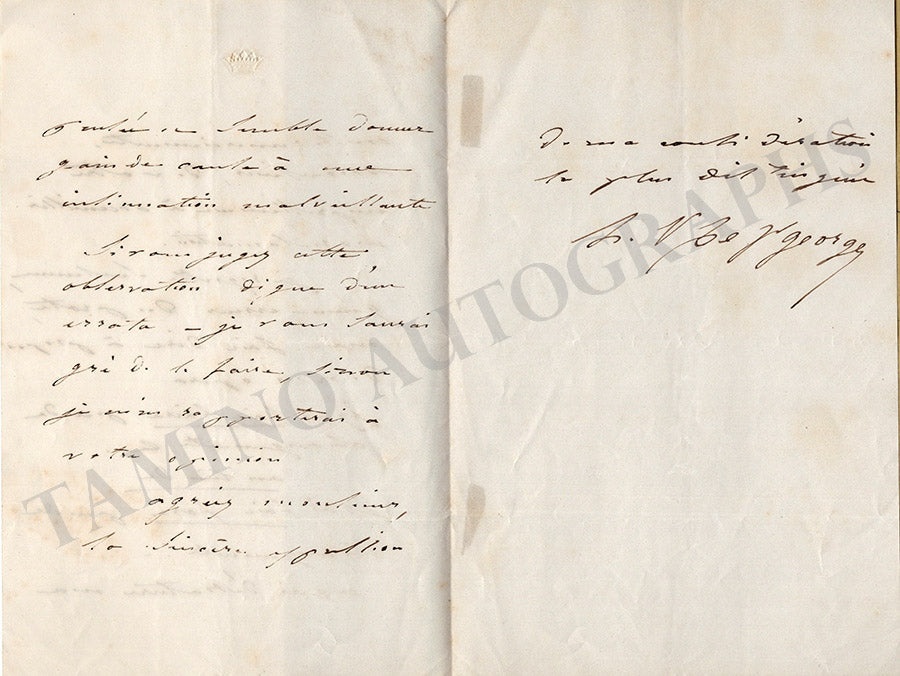 semble donner
gain de cause à une
insinuation malveillante
Si vous jugez cette
observation digne d'un
errata – je vous saurai
gré de le faire, sinon
je m'en rapporterai à
votre opinion
agréez monsieur,
la sincère expression
de ma considération
la plus distinguée
St george
TAMINO AUTOGRAPHS